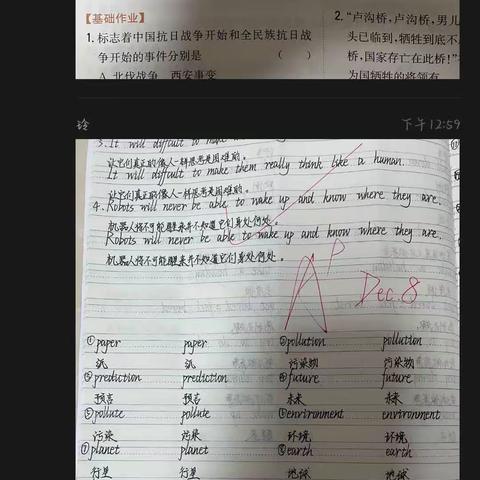 【基础作业】
1. 标志着中国抗日战争开始和全民族抗日战
争开始的事件分别是 ( )
A. 北伐战争 西安事变
2. “卢沟桥,卢沟桥,男儿
头已临到,牺牲到底不
桥,国家存在此桥!”
为国牺牲的将领有
玲
下午12:59
3. It will difficult to make
让它们真正的像人一样思考是困难的。
It will difficult to make them really think like a human.
让它们真正的像人一样思考是困难的。
4. Robots will never be able to wake up and know where they are.
机器人将不可能醒来并不知道它们身处何处。
Robots will never be able to wake up and know where they are.
机器人将不可能醒来并不知道它们身处何处。
A
Dec.8
paper paper pollution pollution
纸 纸 污染物 污染物
prediction prediction future future
预言 预言 未来 未来
pollute pollute environment environment
污染 污染 环境 环境
planet planet earth earth
行星 行星 地球 地球